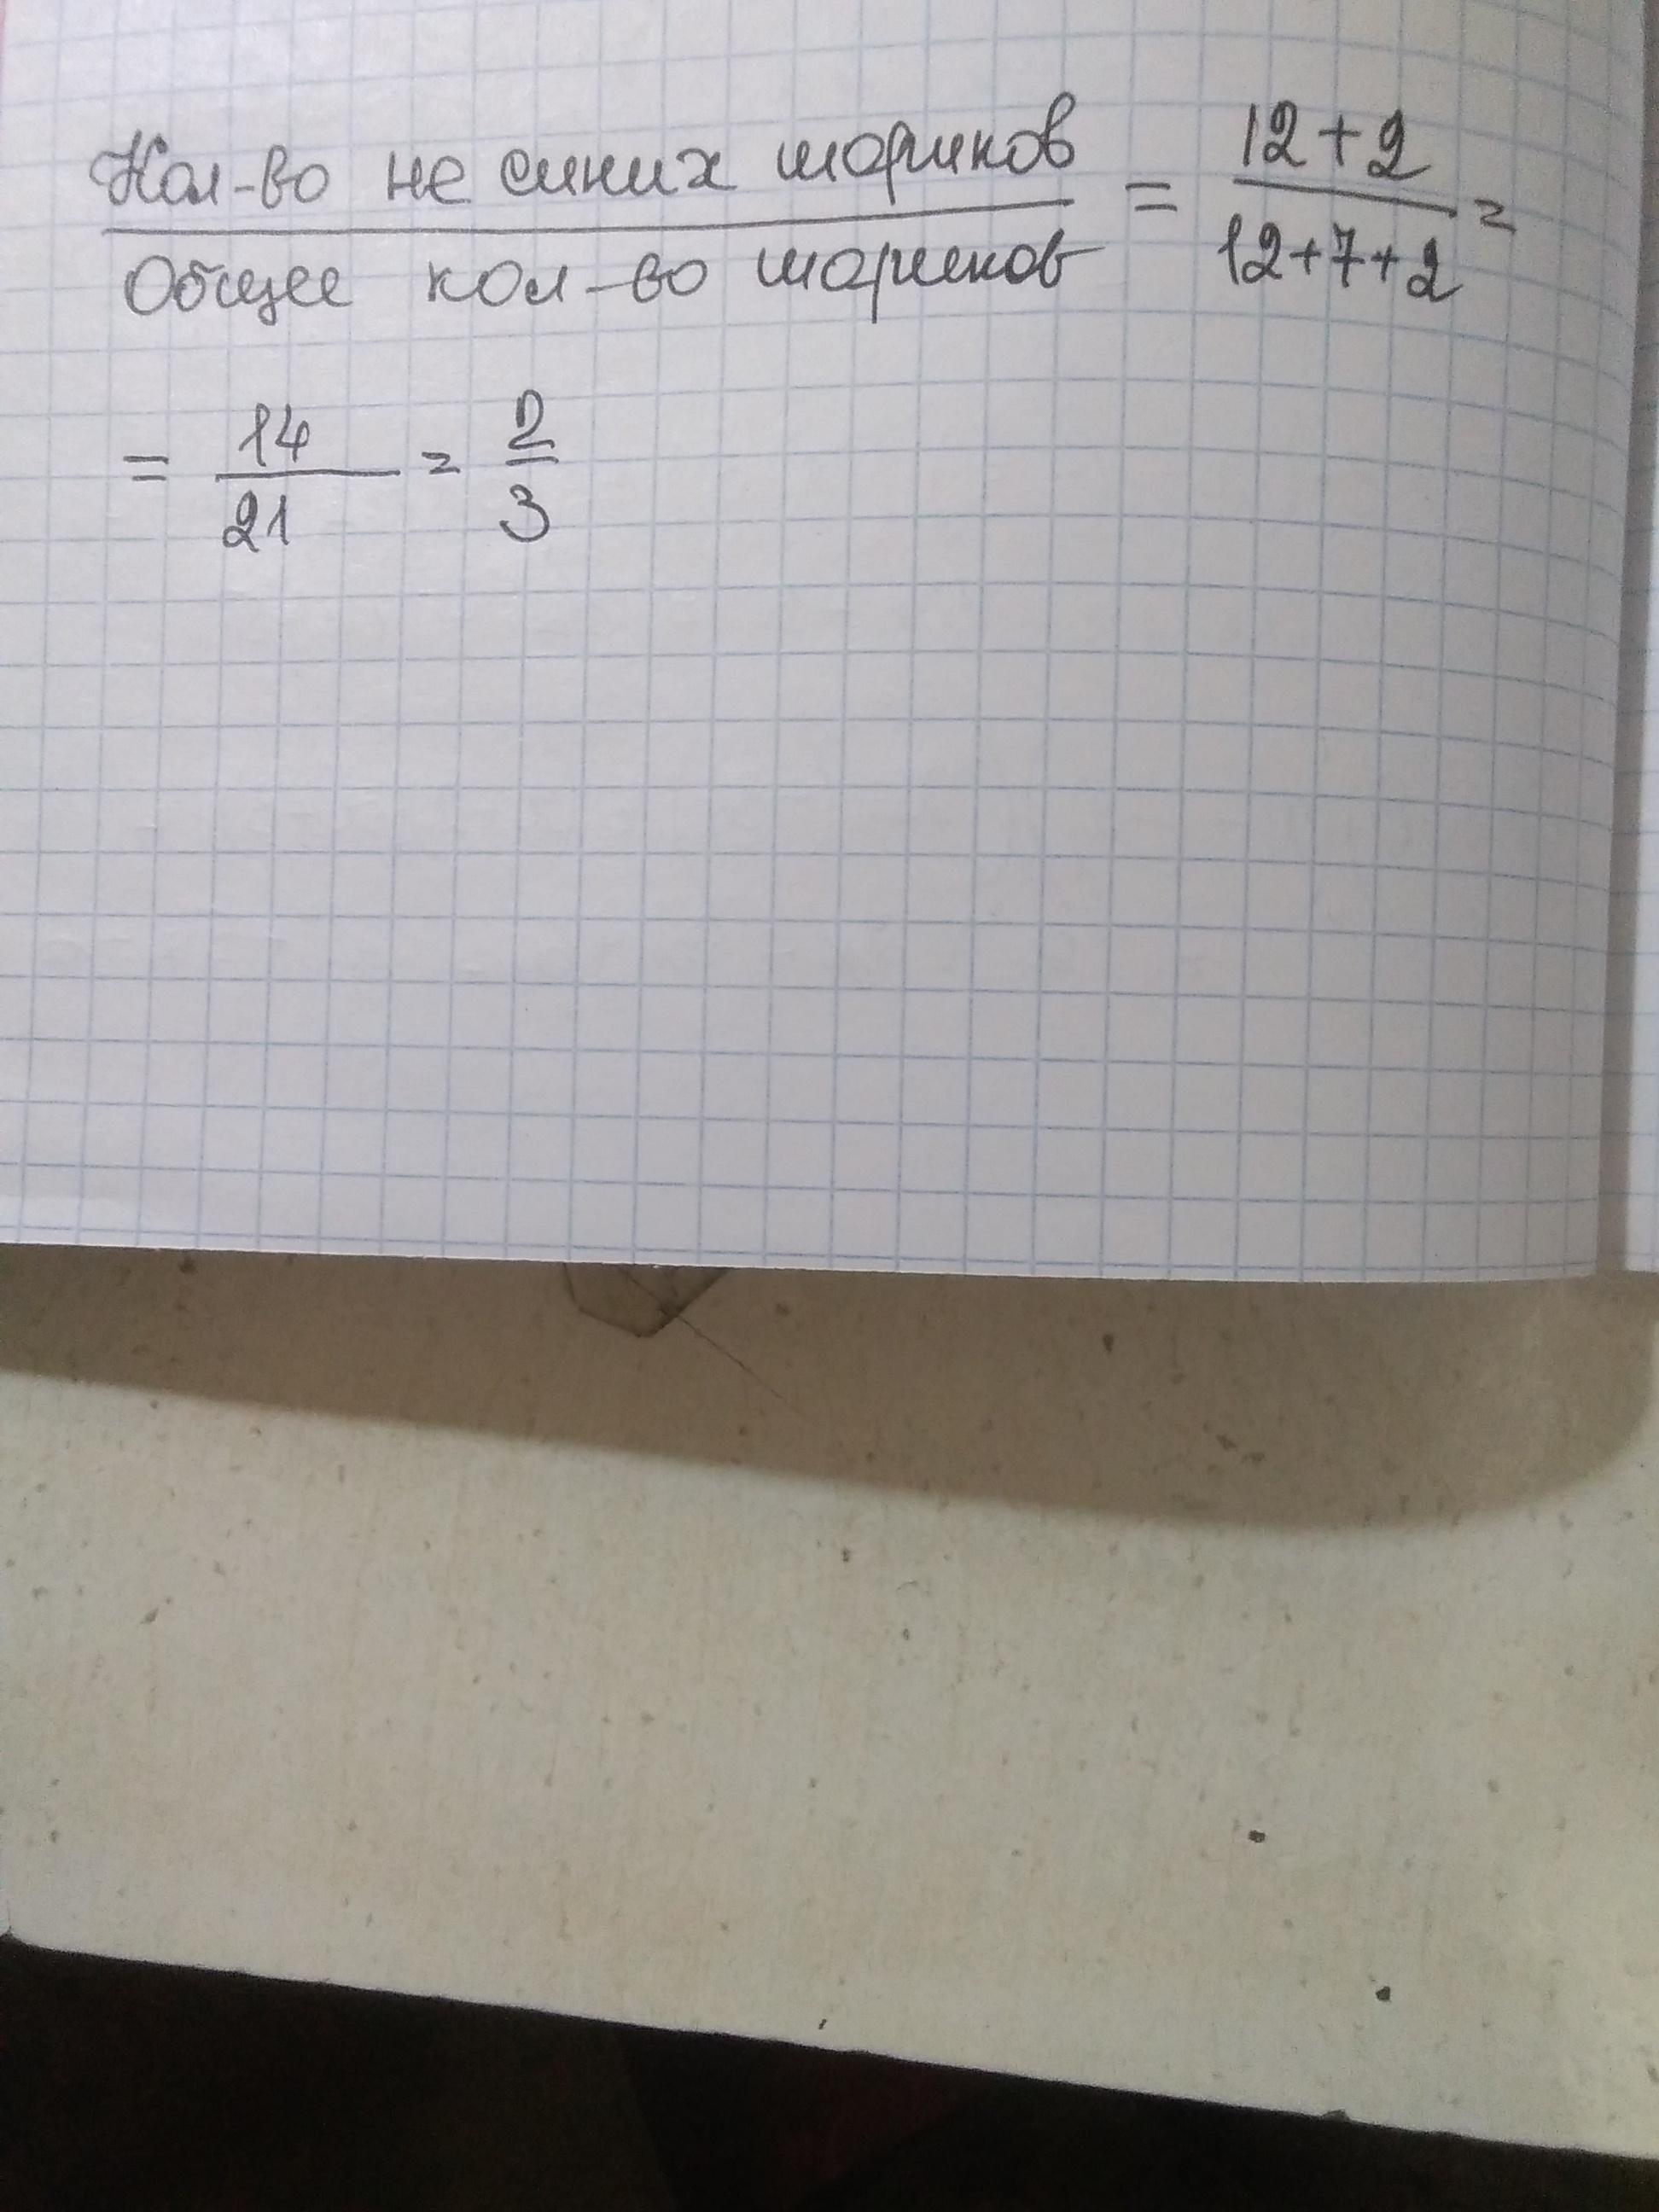 Кол-во не синих шариков / Общее кол-во шариков = 12+2 / 12+7+2 =
= 14 / 21 = 2 / 3